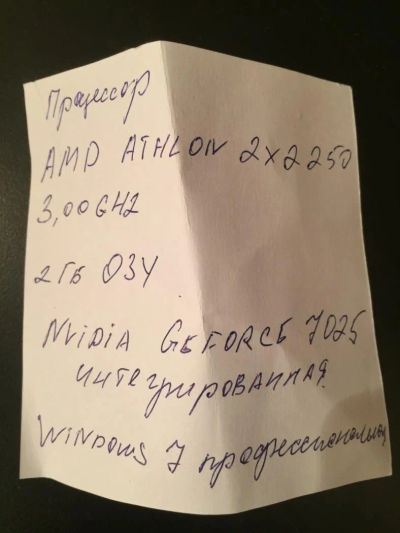 Процессор
AMD ATHLON 2X2 250
3,00GHZ
2ГБ ОЗУ
NVIDIA GEFORCE 7025
интегрированная
WINDOWS 7 профессиональная